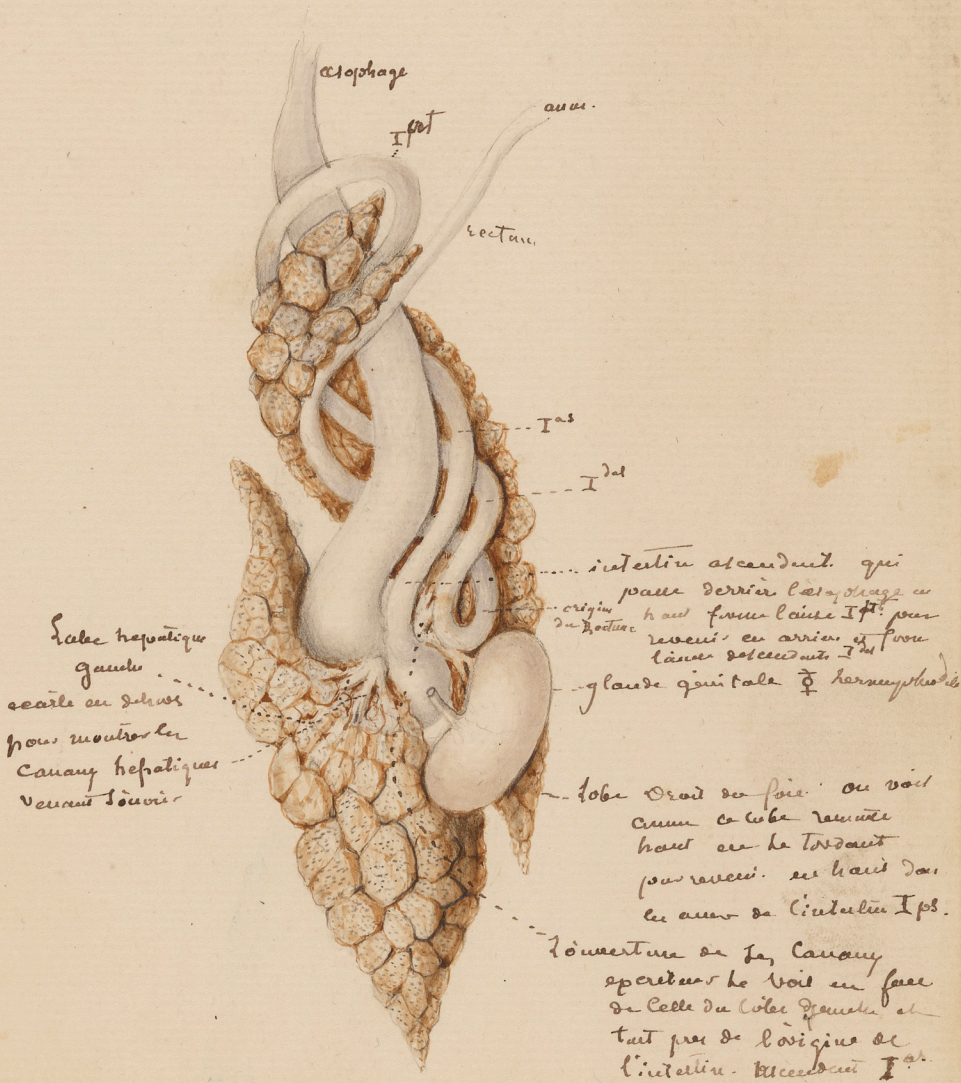 œsophage
anus.
I pst
rectum
I as
I des
intestin ascendant. qui
passe derrier l'œsophage en
haut forme l'anse I pst. pour
revenir en arriere et form
l'anse descendante I des
origine
du Rectum
glande génitale ⚥ hermaphrodite
Lobe hepatique
gauche
ecarte en dehors
pour montrer les
Canaux hepatiques
venant s'ouvrir
Lobe Droit du foie. on voit
comme ce lobe remonte
haut en se tordant
pour revenir. en haut dans
les anses de l'intestin I ps.
L'ouverture de ses Canaux
excreteurs se voit en face
de Celle du lobe gauche et
tout pres de l'origine de
l'intestin. ascendant I as.